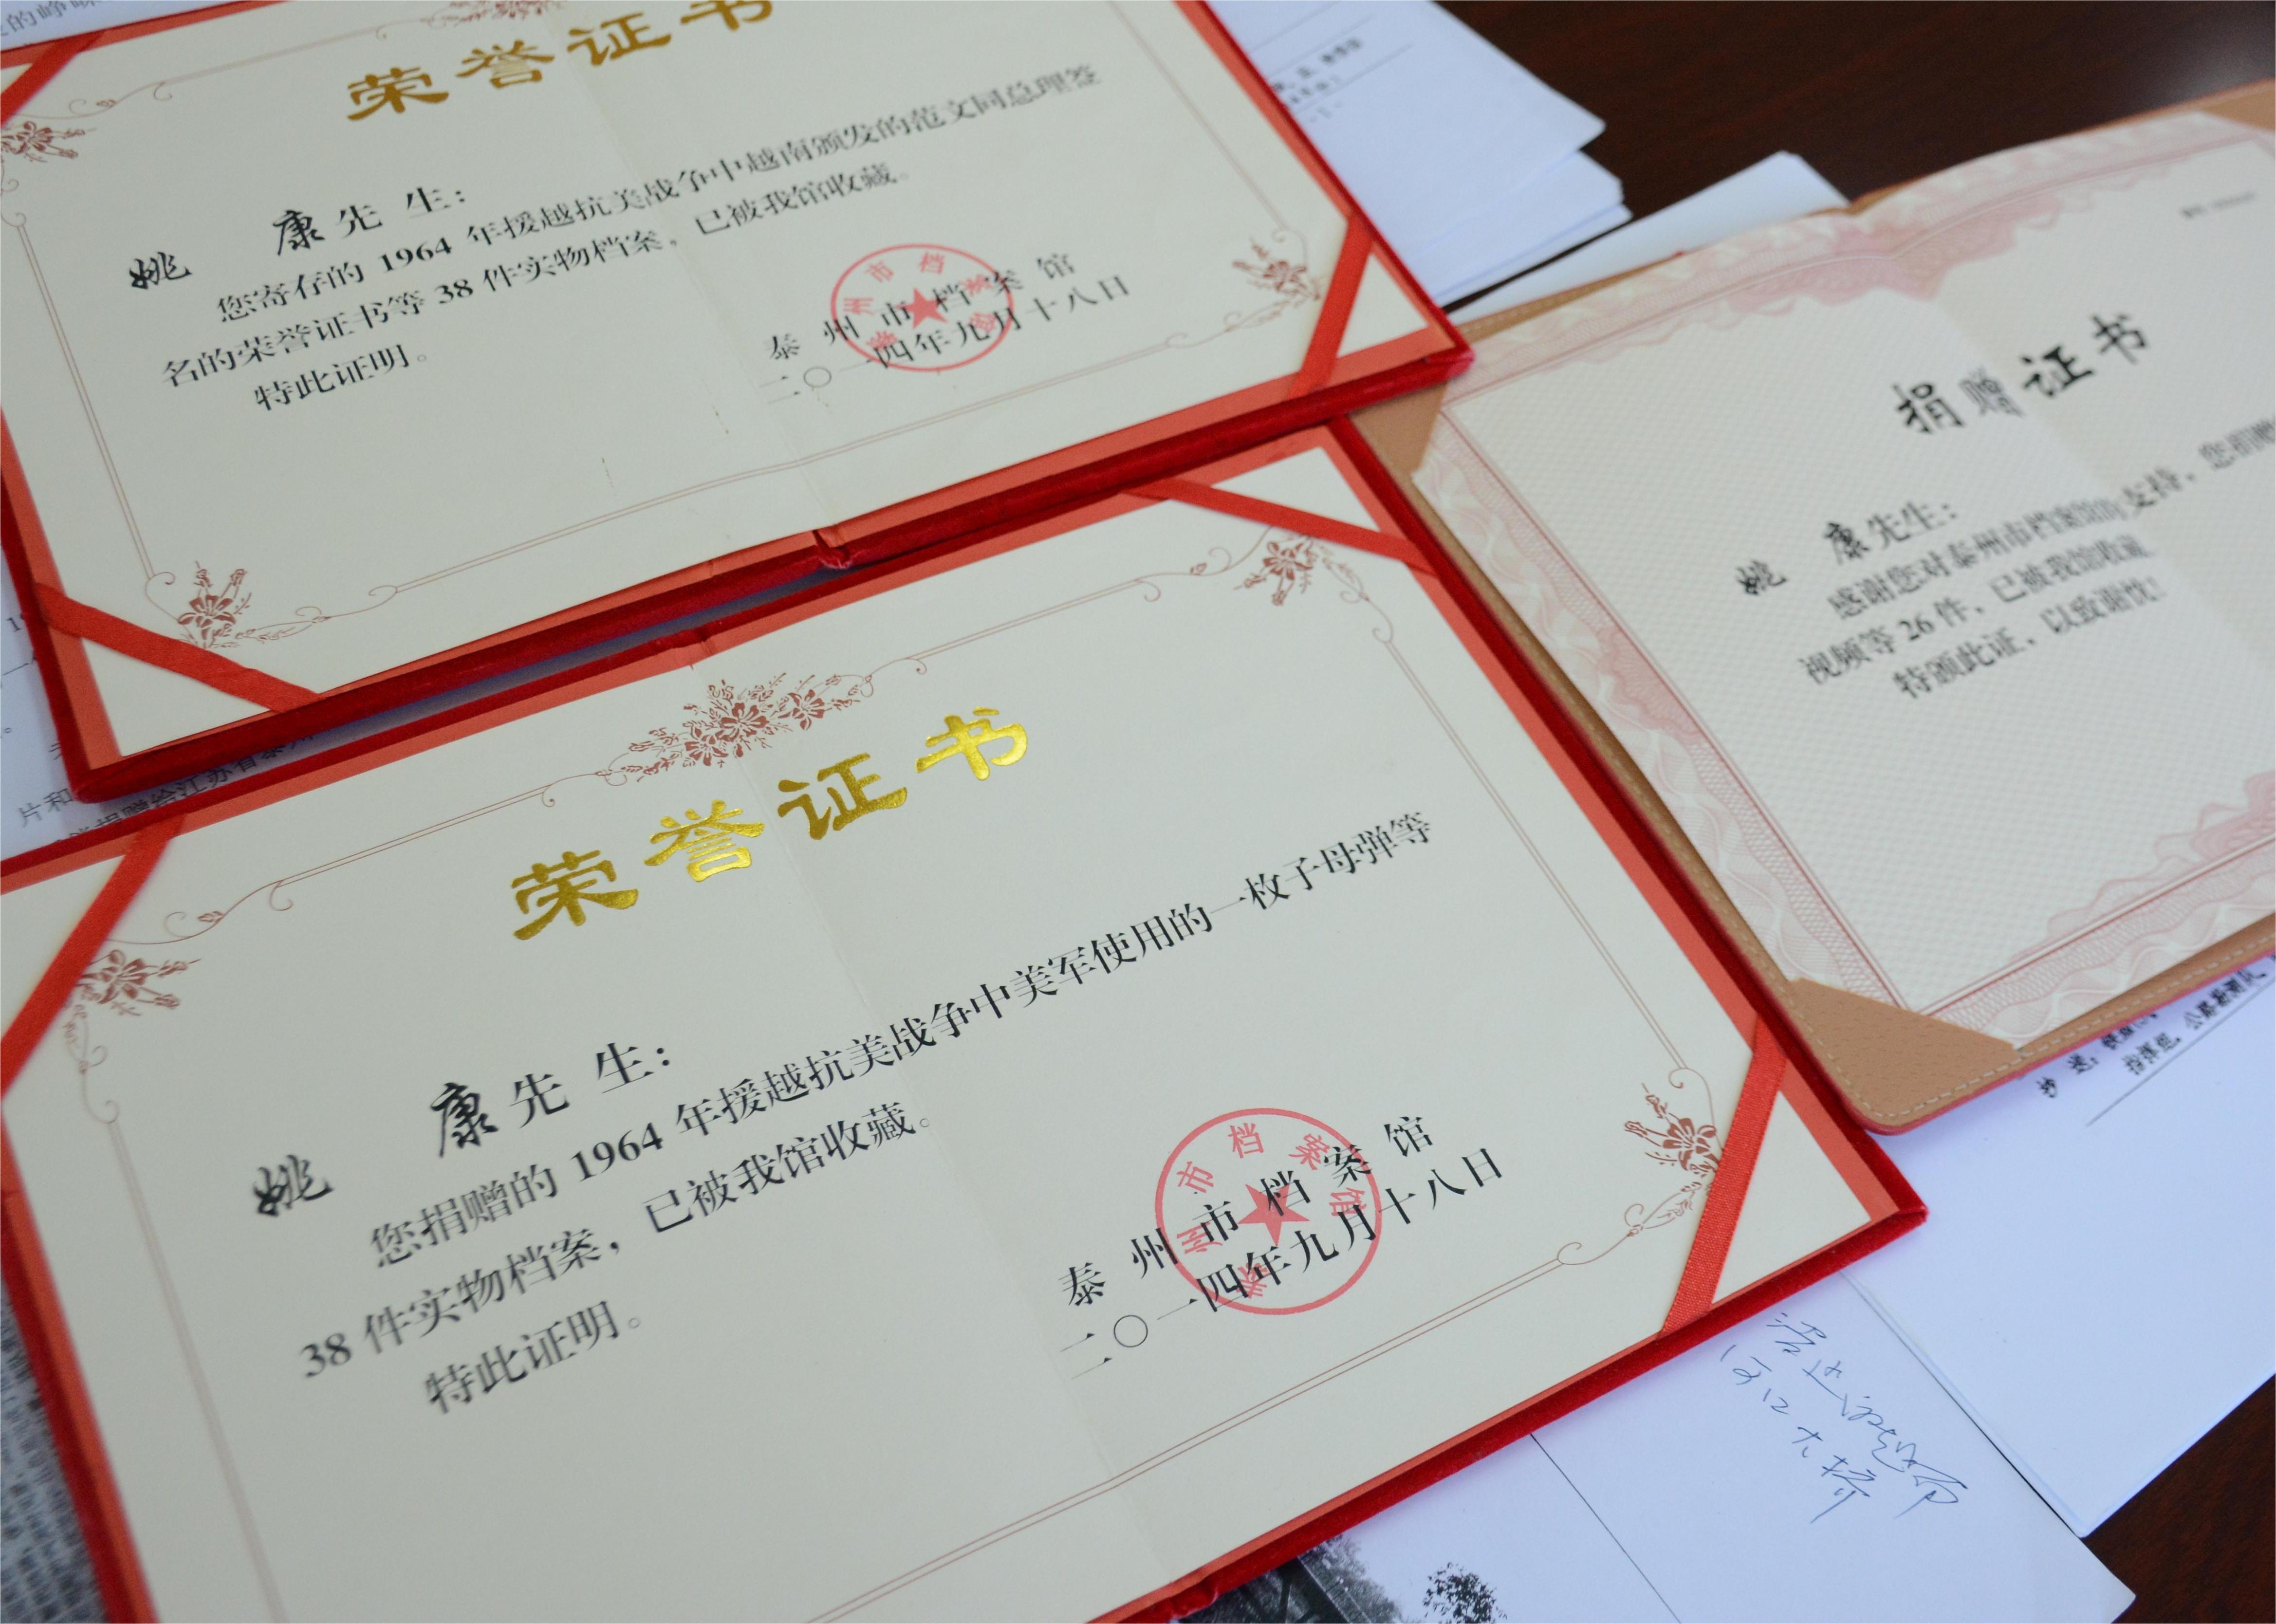 荣誉证书
姚 康先 生：
您寄存的 1964 年援越抗美战争中越南颁发的范文同总理签
名的荣誉证书等 38 件实物档案，已被我馆收藏。
特此证明。
泰 州 市 档 案 馆
二〇一四年九月十八日
捐赠证书
姚 康先生：
感谢您对泰州市档案馆的支持，您捐赠
视频等 26 件，已被我馆收藏。
特颁此证，以致谢忱！
荣誉证书
姚 康先 生：
您捐赠的 1964 年援越抗美战争中美军使用的一枚子母弹等
38 件实物档案，已被我馆收藏。
特此证明。
泰 州 市 档 案 馆
二〇一四年九月十八日
片和
捐赠给江苏省泰州
抄 送：
指挥组，公路
河口大桥